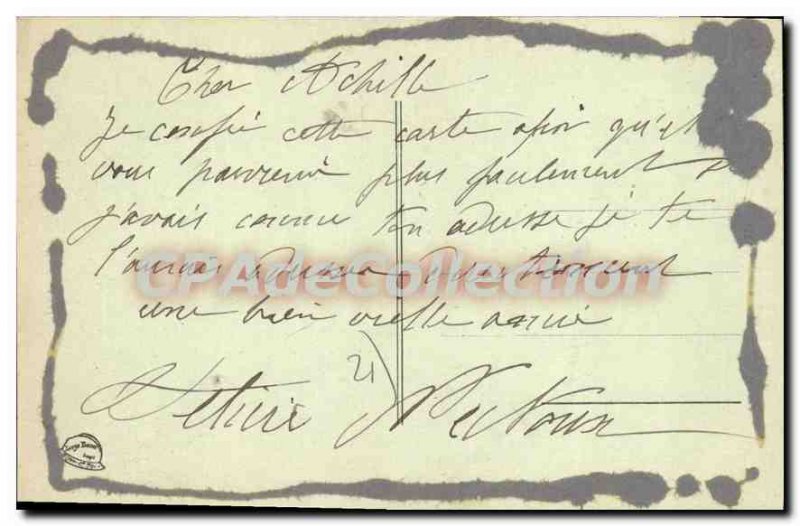 Cher Achille
Je confie cette carte afin qu'el
vous parvienne plus facilement si
j'avais connu ton adresse je te
l'aurais directement
une bien vieille amie
21
CPAdeCollection